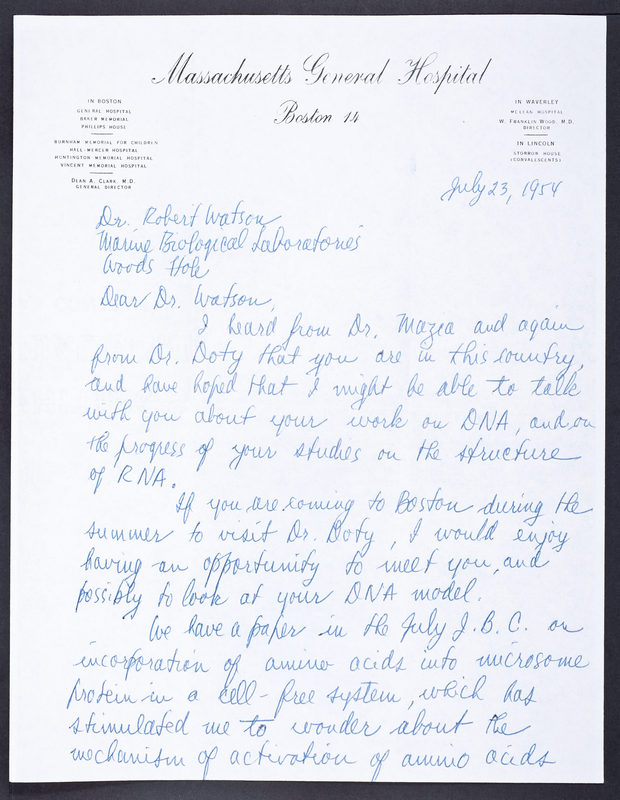 Massachusetts General Hospital
Boston 14
IN BOSTON
GENERAL HOSPITAL
BAKER MEMORIAL
PHILLIPS HOUSE
BURNHAM MEMORIAL FOR CHILDREN
HALL-MERCER HOSPITAL
HUNTINGTON MEMORIAL HOSPITAL
VINCENT MEMORIAL HOSPITAL
DEAN A. CLARK, M.D.
GENERAL DIRECTOR
IN WAVERLEY
MCLEAN HOSPITAL
W. FRANKLIN WOOD, M.D.
DIRECTOR
IN LINCOLN
STORROW HOUSE
(CONVALESCENTS)
July 23, 1954
Dr. Robert Watson
Marine Biological Laboratories
Woods Hole
Dear Dr. Watson,
I heard from Dr. Mazia and again
from Dr. Doty that you are in this country,
and have hoped that I might be able to talk
with you about your work on DNA, and on
the progress of your studies on the structure
of RNA.
If you are coming to Boston during the
summer to visit Dr. Doty, I would enjoy
having an opportunity to meet you, and
possibly to look at your DNA model.
We have a paper in the July J.B.C. on
incorporation of amino acids into microsome
protein in a cell-free system, which has
stimulated me to wonder about the
mechanism of activation of amino acids